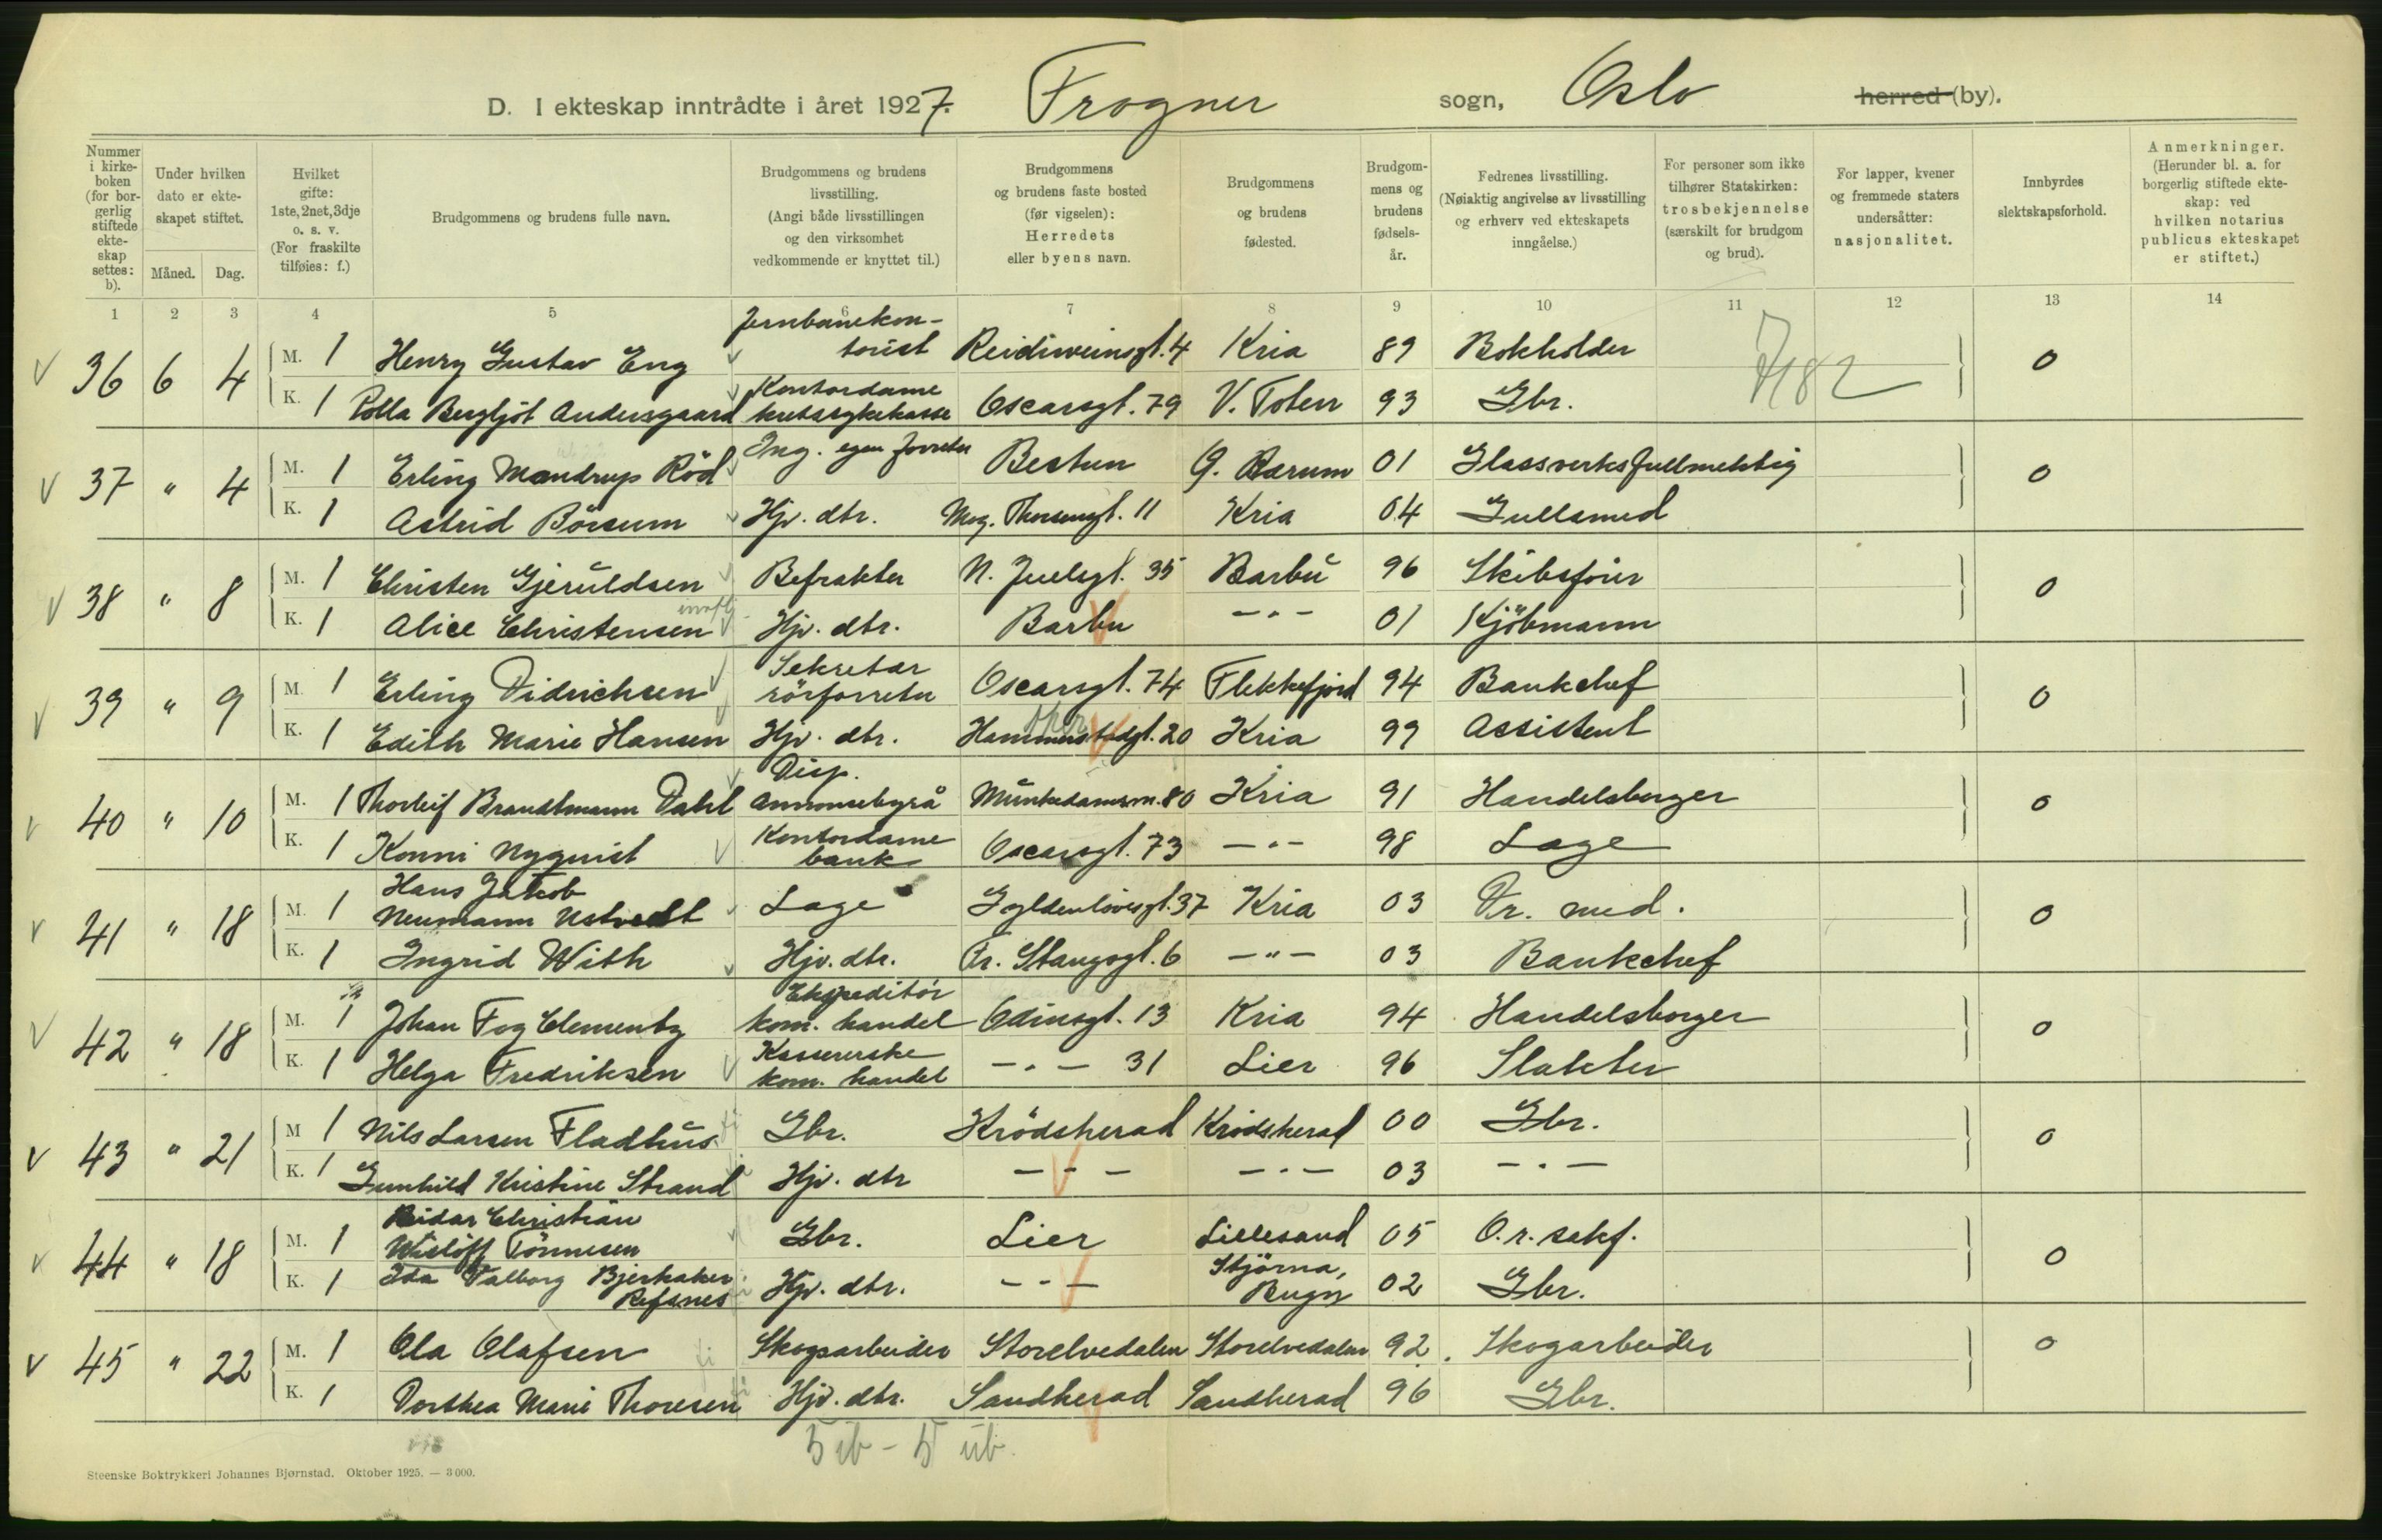 D. I ekteskap inntrådte i året 1927. Frogner sogn, Oslo herred (by).
Nummer i kirke-boken (for bor-gerlig stiftede ekte-skap settes: b).
Under hvilken dato er ekte-skapet stiftet.
Måned. Dag.
Hvilket gifte: 1ste, 2net, 3dje o. s. v. (For fraskilte tilføies: f.)
Brudgommens og brudens fulle navn.
Brudgommens og brudens livsstilling. (Angi både livsstillingen og den virksomhet vedkommende er knyttet til.)
Brudgommens og brudens faste bosted (før vigselen): Herredets eller byens navn.
Brudgommens og brudens fødested.
Brudgom-mens og brudens fødsels-år.
Fedrenes livsstilling. (Nøiaktig angivelse av livsstilling og erhverv ved ekteskapets inngåelse.)
For personer som ikke tilhører Statskirken: trosbekjennelse (særskilt for brudgom og brud).
For lapper, kvener og fremmede staters undersåtter: nasjonalitet.
Innbyrdes slektskapsforhold.
Anmerkninger. (Herunder bl. a. for borgerlig stiftede ekte-skap: ved hvilken notarius publicus ekteskapet er stiftet.)
1 2 3 4 5 6 7 8 9 10 11 12 13 14
36 6 4 M. 1 Henry Gustav Eng Jernbanekon-torist 4 Kria 89 Bokholder 0
K. 1 Bergljot Andersgaard Kontordame Oscarsgt. 79 V. Toten 93 Gbr.
37 " 4 M. 1 Erling Mandrup Röd Ing. egen forretn Bestun Bærum 01 Glassverksfullmektig 0
K. 1 Astrid Börsum Hjv. dtr. Mog. Thorsensgt. 11 Kria 04 Gullsmed
38 " 8 M. 1 Christen Gjeruldsen Befrakter N. Juelsgt. 35 Barbu 96 Skibsförer 0
K. 1 Alice Christensen Hjv. dtr. Barbu — " — 01 Kjöbmann
39 " 9 M. 1 Erling Didrichsen Sekretær rörforretn Oscarsgt. 74 Flekkefjord 94 Bankchef 0
K. 1 Edith Marie Hansen Hjv. dtr. Hammerstadgt. 20 Kria 99 Assistent
40 " 10 M. 1 Thorleif Brandtmann Dahl Disp. Annonsebyrå Munkedamsvn. 80 Kria 91 Handelsborger 0
K. 1 Konni Nyquist Kontordame bank Oscarsgt. 73 — " — 98 Læge
41 " 18 M. 1 Hans Jakob Neumann Ustvedt Læge Gyldenlövesgt. 37 Kria 03 Dr. med. 0
K. 1 Ingrid With Hjv. dtr. Fr. Stangsgt. 6 — " — 03 Bankchef
42 " 18 M. 1 Johan Fog Clementz Ekspeditör kom. handel Odinsgt. 13 Kria 94 Handelsborger 0
K. 1 Helga Fredriksen Kassererske kom. handel — " — 31 Lier 96 Slakter
43 " 21 M 1 Nils Larsen Fladhus Gbr. Krödsherad Krödsherad 00 Gbr. 0
K. 1 Gunhild Kristine Strand Hjv. dtr — " — — " — 03 — " —
44 " 18 M. 1 Reidar Christian Wislöff Tönnesen Gbr. Lier Lillesand 05 O.r. sakf. 0
K. 1 Ida Valborg Bjerkaker Refsnes Hjv. dtr. — " — Stjörna, Bugn 02 Gbr.
45 " 22 M. 1 Ola Olafsen Skogsarbeider Storelvedalen Storelvedalen 92 Skogarbeider 0
K. 1 Dorthea Marie Thoresen Hjv. dtr. Sandherad Sandherad 96 Gbr.
5 ib - 5 ub.
Steenske Boktrykkeri Johannes Bjørnstad. Oktober 1925. — 3 000.